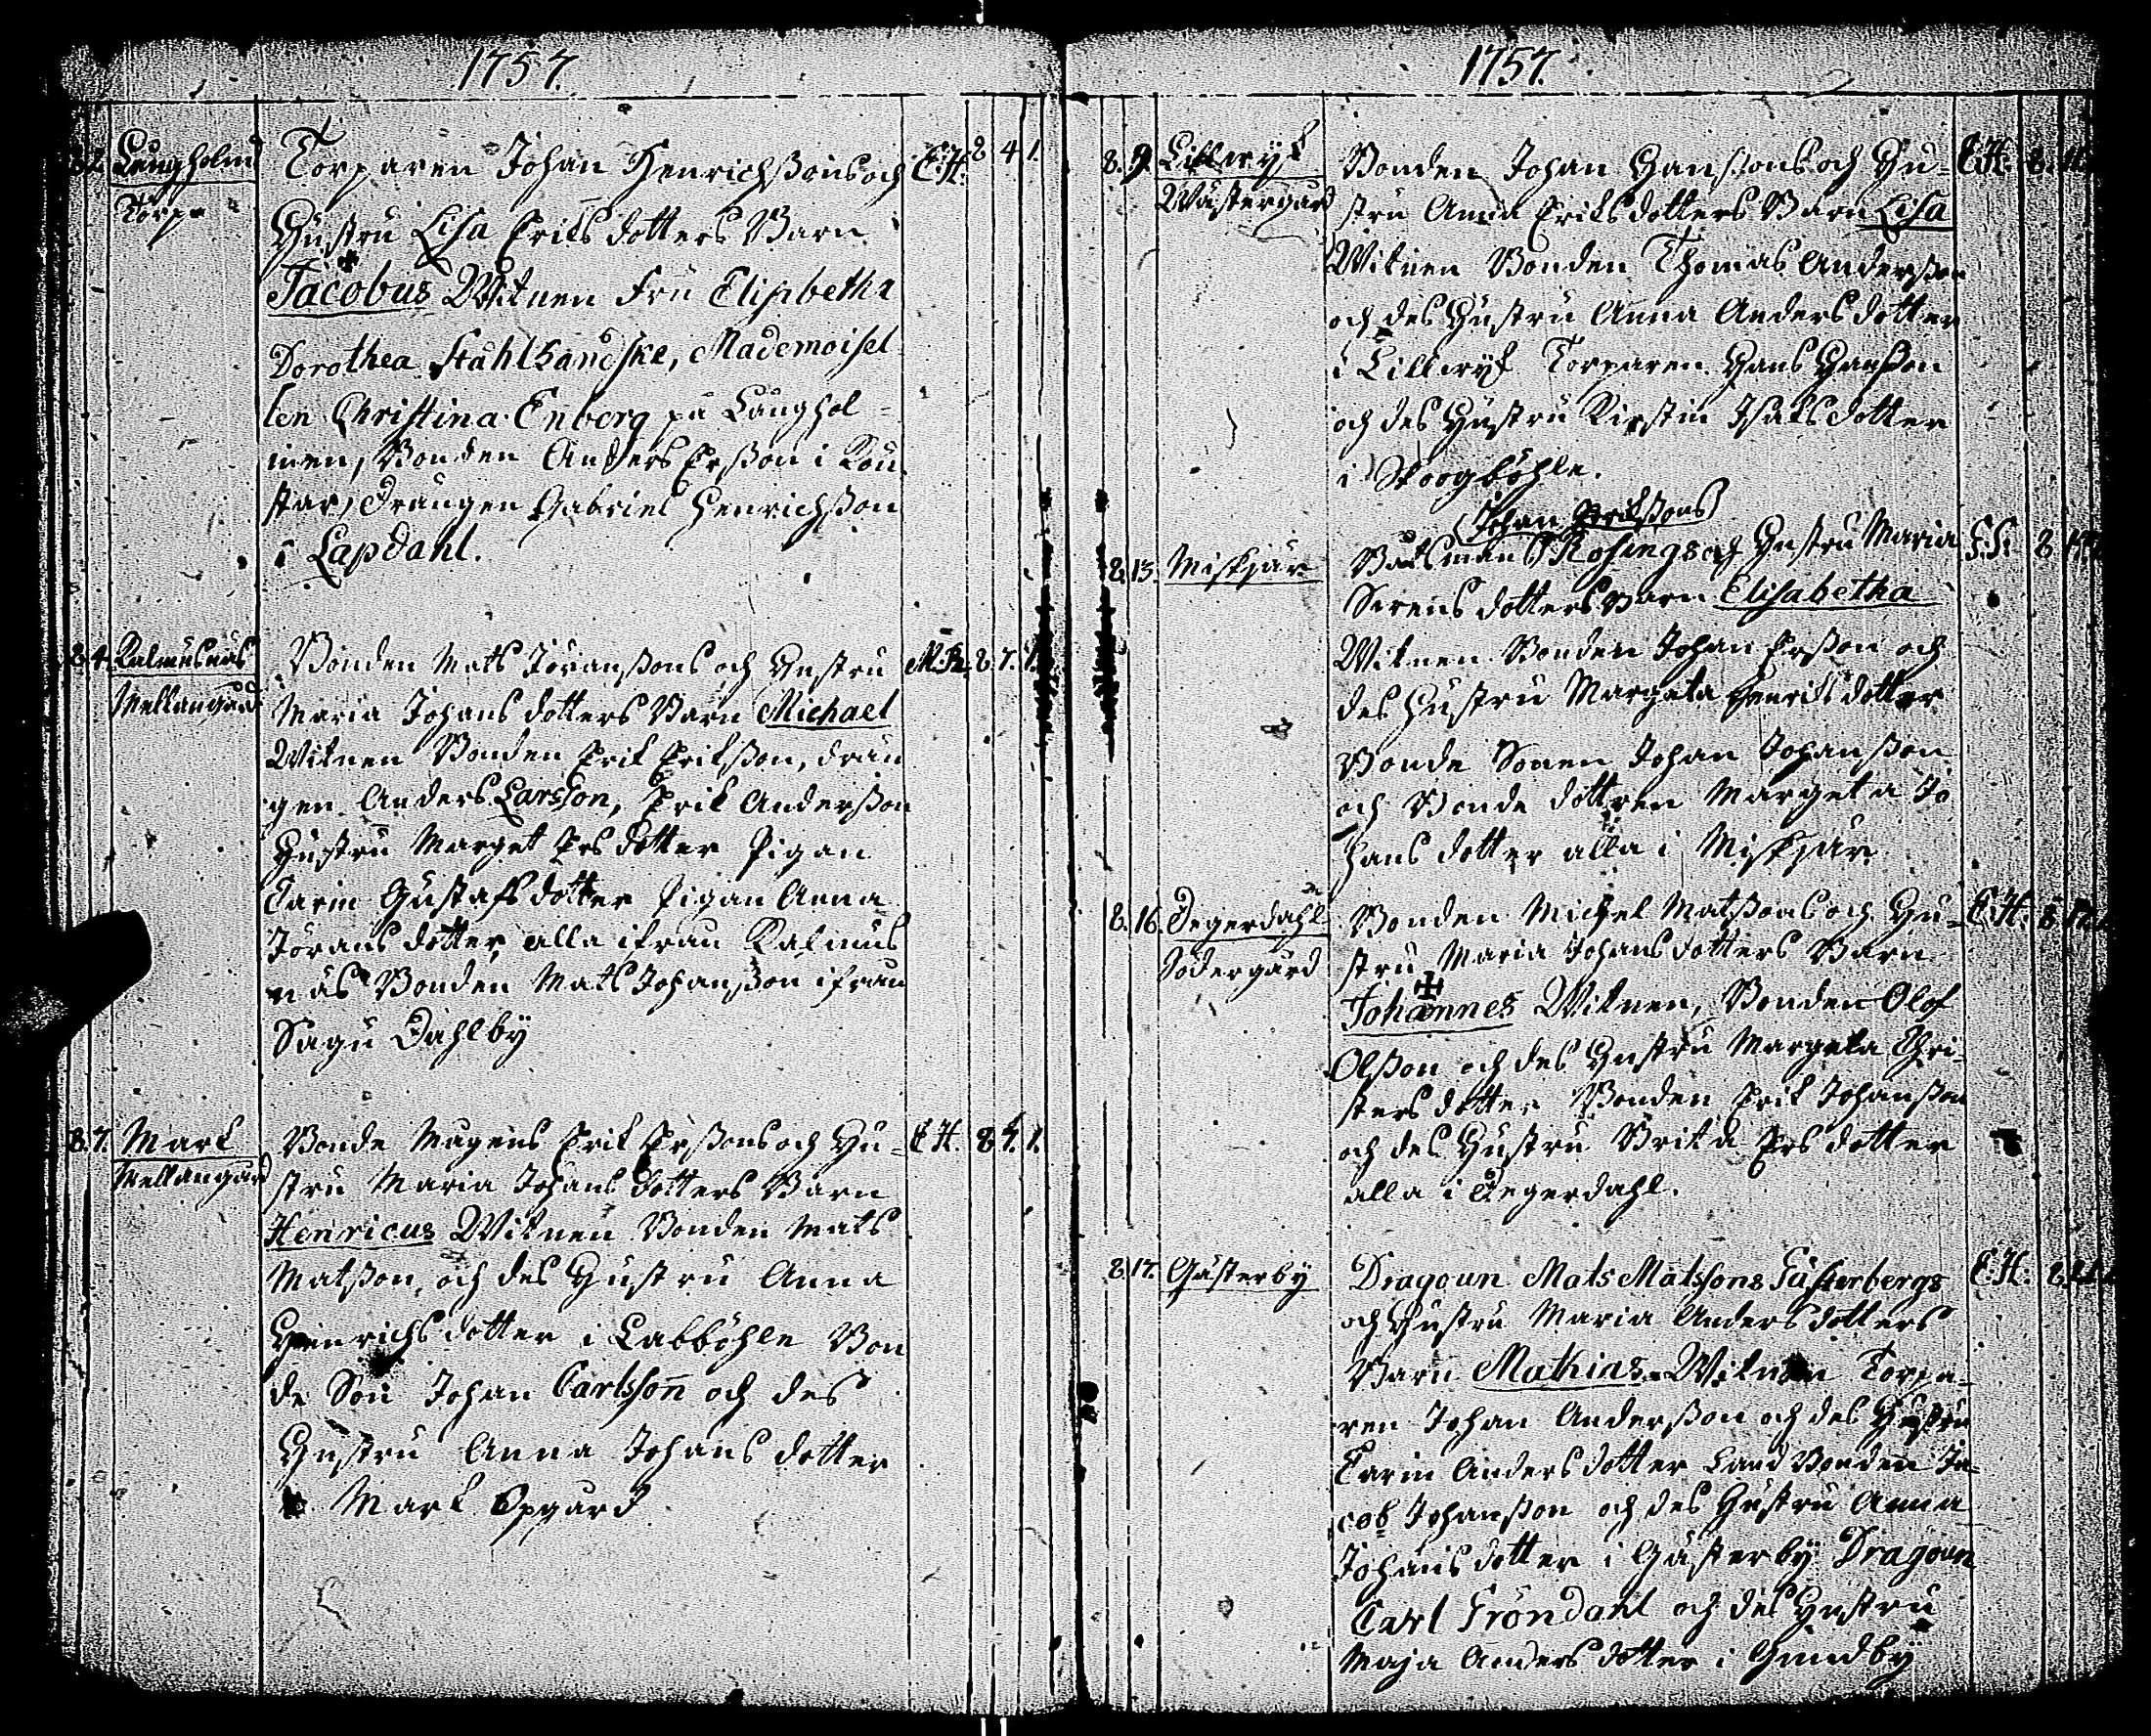 1757.
Langholm
Torp
Torparen Johan Henrichßons och E.H. 8 4 1.
Hustru Lisa Eriksdotters Barn
Jacobus Witnen Fru Elisabetha
Dorothea Stahlhandske, Mademoisel
len Christina Enberg på Langhol-
men, Bonden Anders Ersson i
Drängen Gabriel Henrichßon
i Lapdahl.
8 4. Kalmusnäs
Mellangård
Bonden Mats Göranßons och Hustru 8. 7. 1.
Maria Johansdotters Barn Michael
Witnen Bonden Erik Erikßon, drän
gen Anders Larsson, Erik Anderßon
Hustru Marget Ersdotter Pigan
Carin Gustafsdotter Pigan Anna
Göransdotter alla ifrån Kalmus
näs Bonden Mats Johanßon ifrån
Sagu Dahlby
8. 7. Mark
Mellangård
Bonde Magens Erik Erßons och Hu- E.H. 8 9. 1.
stru Maria Johansdotters Barn
Henricus Witnen Bonden Mats
Matßon, och des Hustru Anna
Henrichsdotter i Labböhle Bon
de Son Johan Carlsson och des
Hustru Anna Johansdotter
i Mark Opgård
1757.
8. 9. Lillwyk
Wästergård
Bonden Johan Hanßons och Hu- E.H. 8.
stru Anna Eriksdotters Barn Lisa
Witnen Bonden Thomas Anderßon
och des Hustru Anna Andersdotter
i Lillwyk Torparen Hans Hanßon
och des Hustru Kirstin Isaksdotter
i Skogböhle.
(Johan Erikßons)
8. 13. Miskjär
Båtsmans Rosings och Hustru Maria 8
Sirensdotters Barn Elisabetha
Witnen Bonden Johan Erßon och
des Hustru Margeta Henriksdotter
Bonde Sonen Johan Johanßon
och Bonde dottren Margeta Jo
hansdotter alla i Miskjär
8. 16. Degerdahl
Södergård
Bonden Michel Matßons och Hu- E.H. 8
stru Maria Johansdotters Barn
Johannes Witnen, Bonden Olof
Olßon och des Hustru Margeta Chri-
stersdotter Bonden Erik Johanßon
och des Hustru Brita Ersdotter
alla i Degerdahl.
8. 17. Gästerby
Dragoun Mats Matssons Gästerbergs E.H. 8
och Hustru Maria Andersdotters
Barn Mathias Witnen Torpa-
ren Johan Anderßon och des Hustru
Carin Andersdotter Land Bonden Ja-
cob Johanßon och des Hustru Anna
Johansdotter i Gästerby Dragoun
Carl Gröndahl och des Hustru
Maja Andersdotter i Gundby